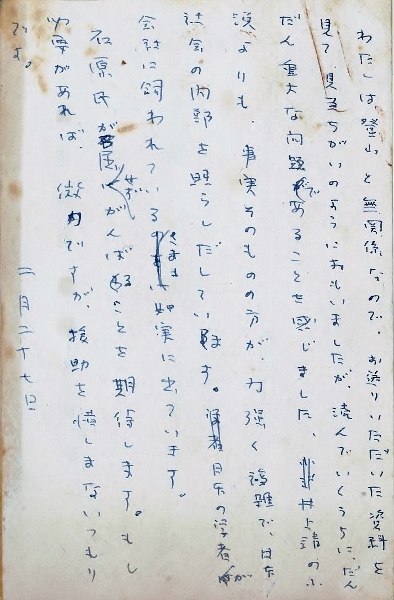 わたしは登山と無関係なので、お送りいただいた資料を
見て、見当ちがいのようにおもいましたが、読んでいくうちに、だん
だん重大な問題であることを感じました、井上靖の小
説よりも、事実そのものの方が、力強く複雑で、日本
社会の内部を照らしだしています。日本の学者が
会社に飼われているさまも如実に出ています。
石原氏が屈せずがんばることを期待します。もし
必要があれば、微力ですが、援助を惜しまないつもり
です。
二月二十七日